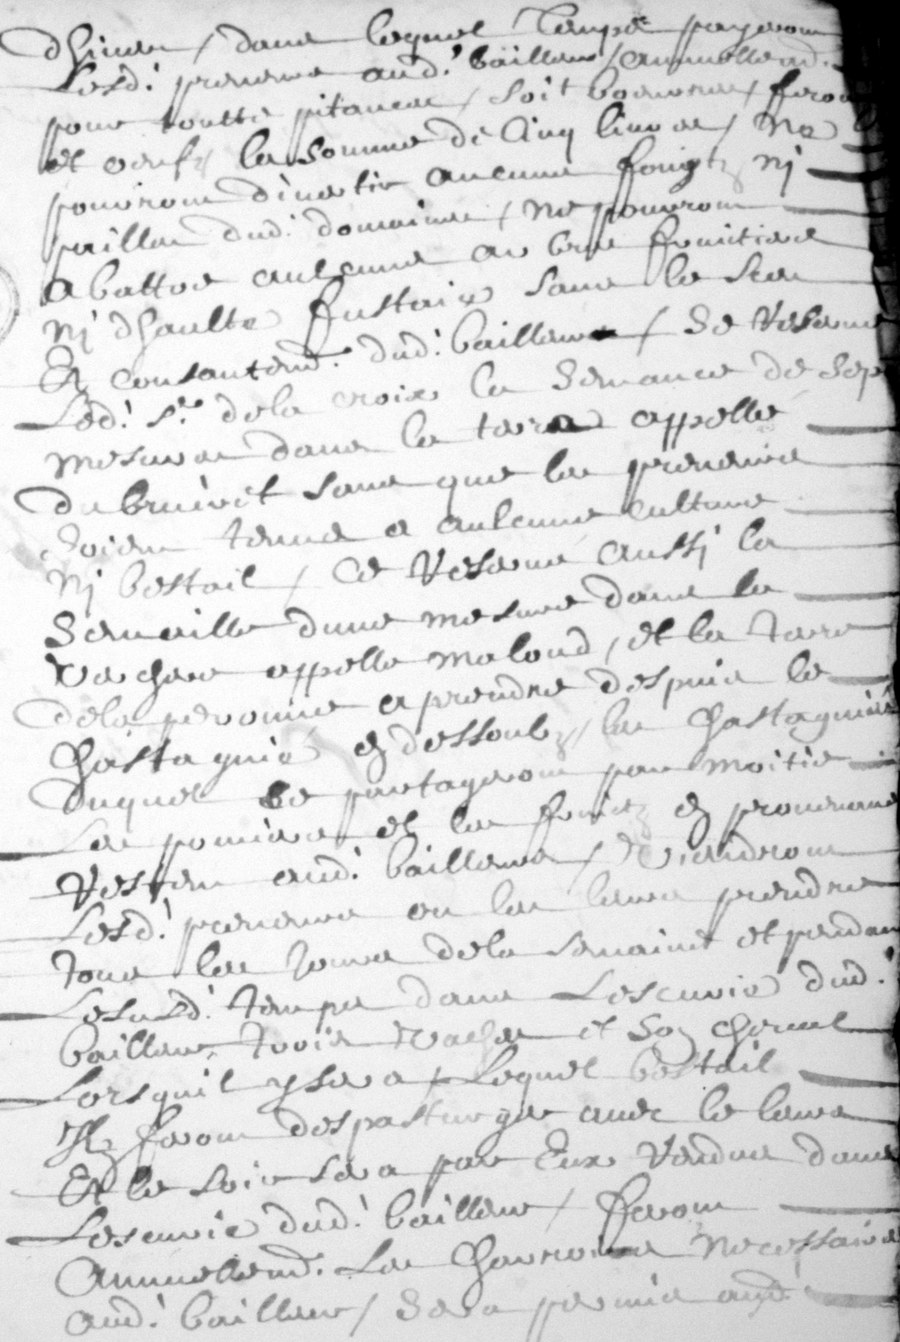 dhiver / dans lequel temps payeront
Lesd. preneurs aud. bailleur / annuellemd.
pour toutte pitance / soit beurre / from
et oeufz la somme de Cinq livres / Ne
pourront divertir aucuns foingtz nj
pailles dud. domaine / ne pourront
abattre aulcuns arbres fruitiers
nj dhaulte fustaix sans le sceu
Et consantemd. dud. bailleur / Se Reserve
Led. Sr. dela croix la semance de sep
mesures dans la terre appelle
du bruivet sans que les preneurs
soient tenus a aulcune culture
nj bestail / Ce Reserve aussi la
semaille dune mesure dans la
vachere appelle maloud / et la terre
dela peronne a prendre despuis le
Chastagnie en dessoubz / les Chastagnies
duquel se partageront par moitie
Les pomiers et les fruitz en provenant
Resten aud. bailleur / Viendront
Lesd. preneurs ou les leurs prendre
Tous les jours dela semaine et pendan
Lesusd. temps dans Lescurie dud.
bailleur trois vaches et son cheval
Lorsquil y sera / Lequel bestail
Ilz feront despasturger avec le leurs
Et le soir sera par Eux Rendus dans
Lescurie dud. bailleur / feront
Annuellemd. Les Charrois Necessaire
aud. bailleur / Sera permis aud.